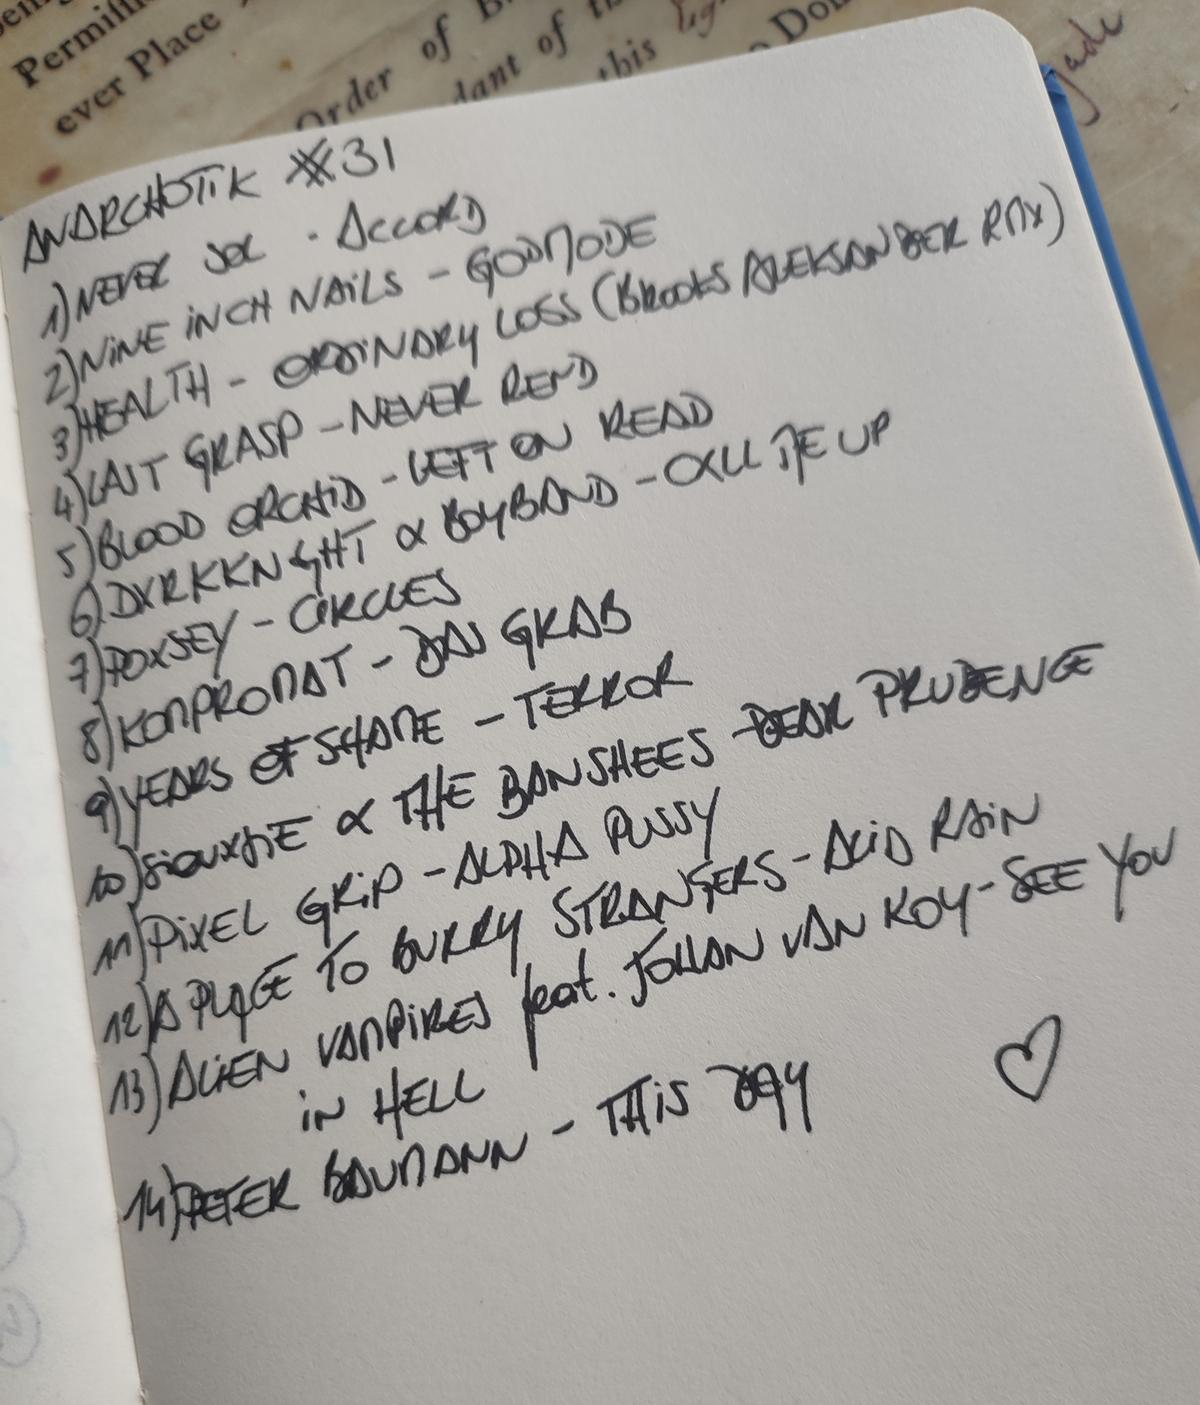 being
Permilli
ever Place
Order of B
dant of th
this lig
Do
gade
ANARCHOTIK #31
1) NEVER SOL - ACCORD
2) NINE INCH NAILS - GODMODE
3) HEALTH - ORDINARY LOSS (BROOKS ALEKSANDER RMX)
4) LAST GRASP - NEVER REND
5) BLOOD ORCHID - LEFT ON READ
6) DXRKKNGHT & BOYBAND - CALL ME UP
7) POXSEY - CIRCLES
8) KOMPROMAT - DAS GRAB
9) YEARS OF SHAME - TERROR
10) SIOUXSIE & THE BANSHEES - DEAR PRUDENCE
11) PIXEL GRIP - ALPHA PUSSY
12) A PLACE TO BURRY STRANGERS - ACID RAIN
13) ALIEN VAMPIRES feat. JOHAN VAN ROY - SEE YOU
IN HELL
14) PETER BAUMANN - THIS DAY